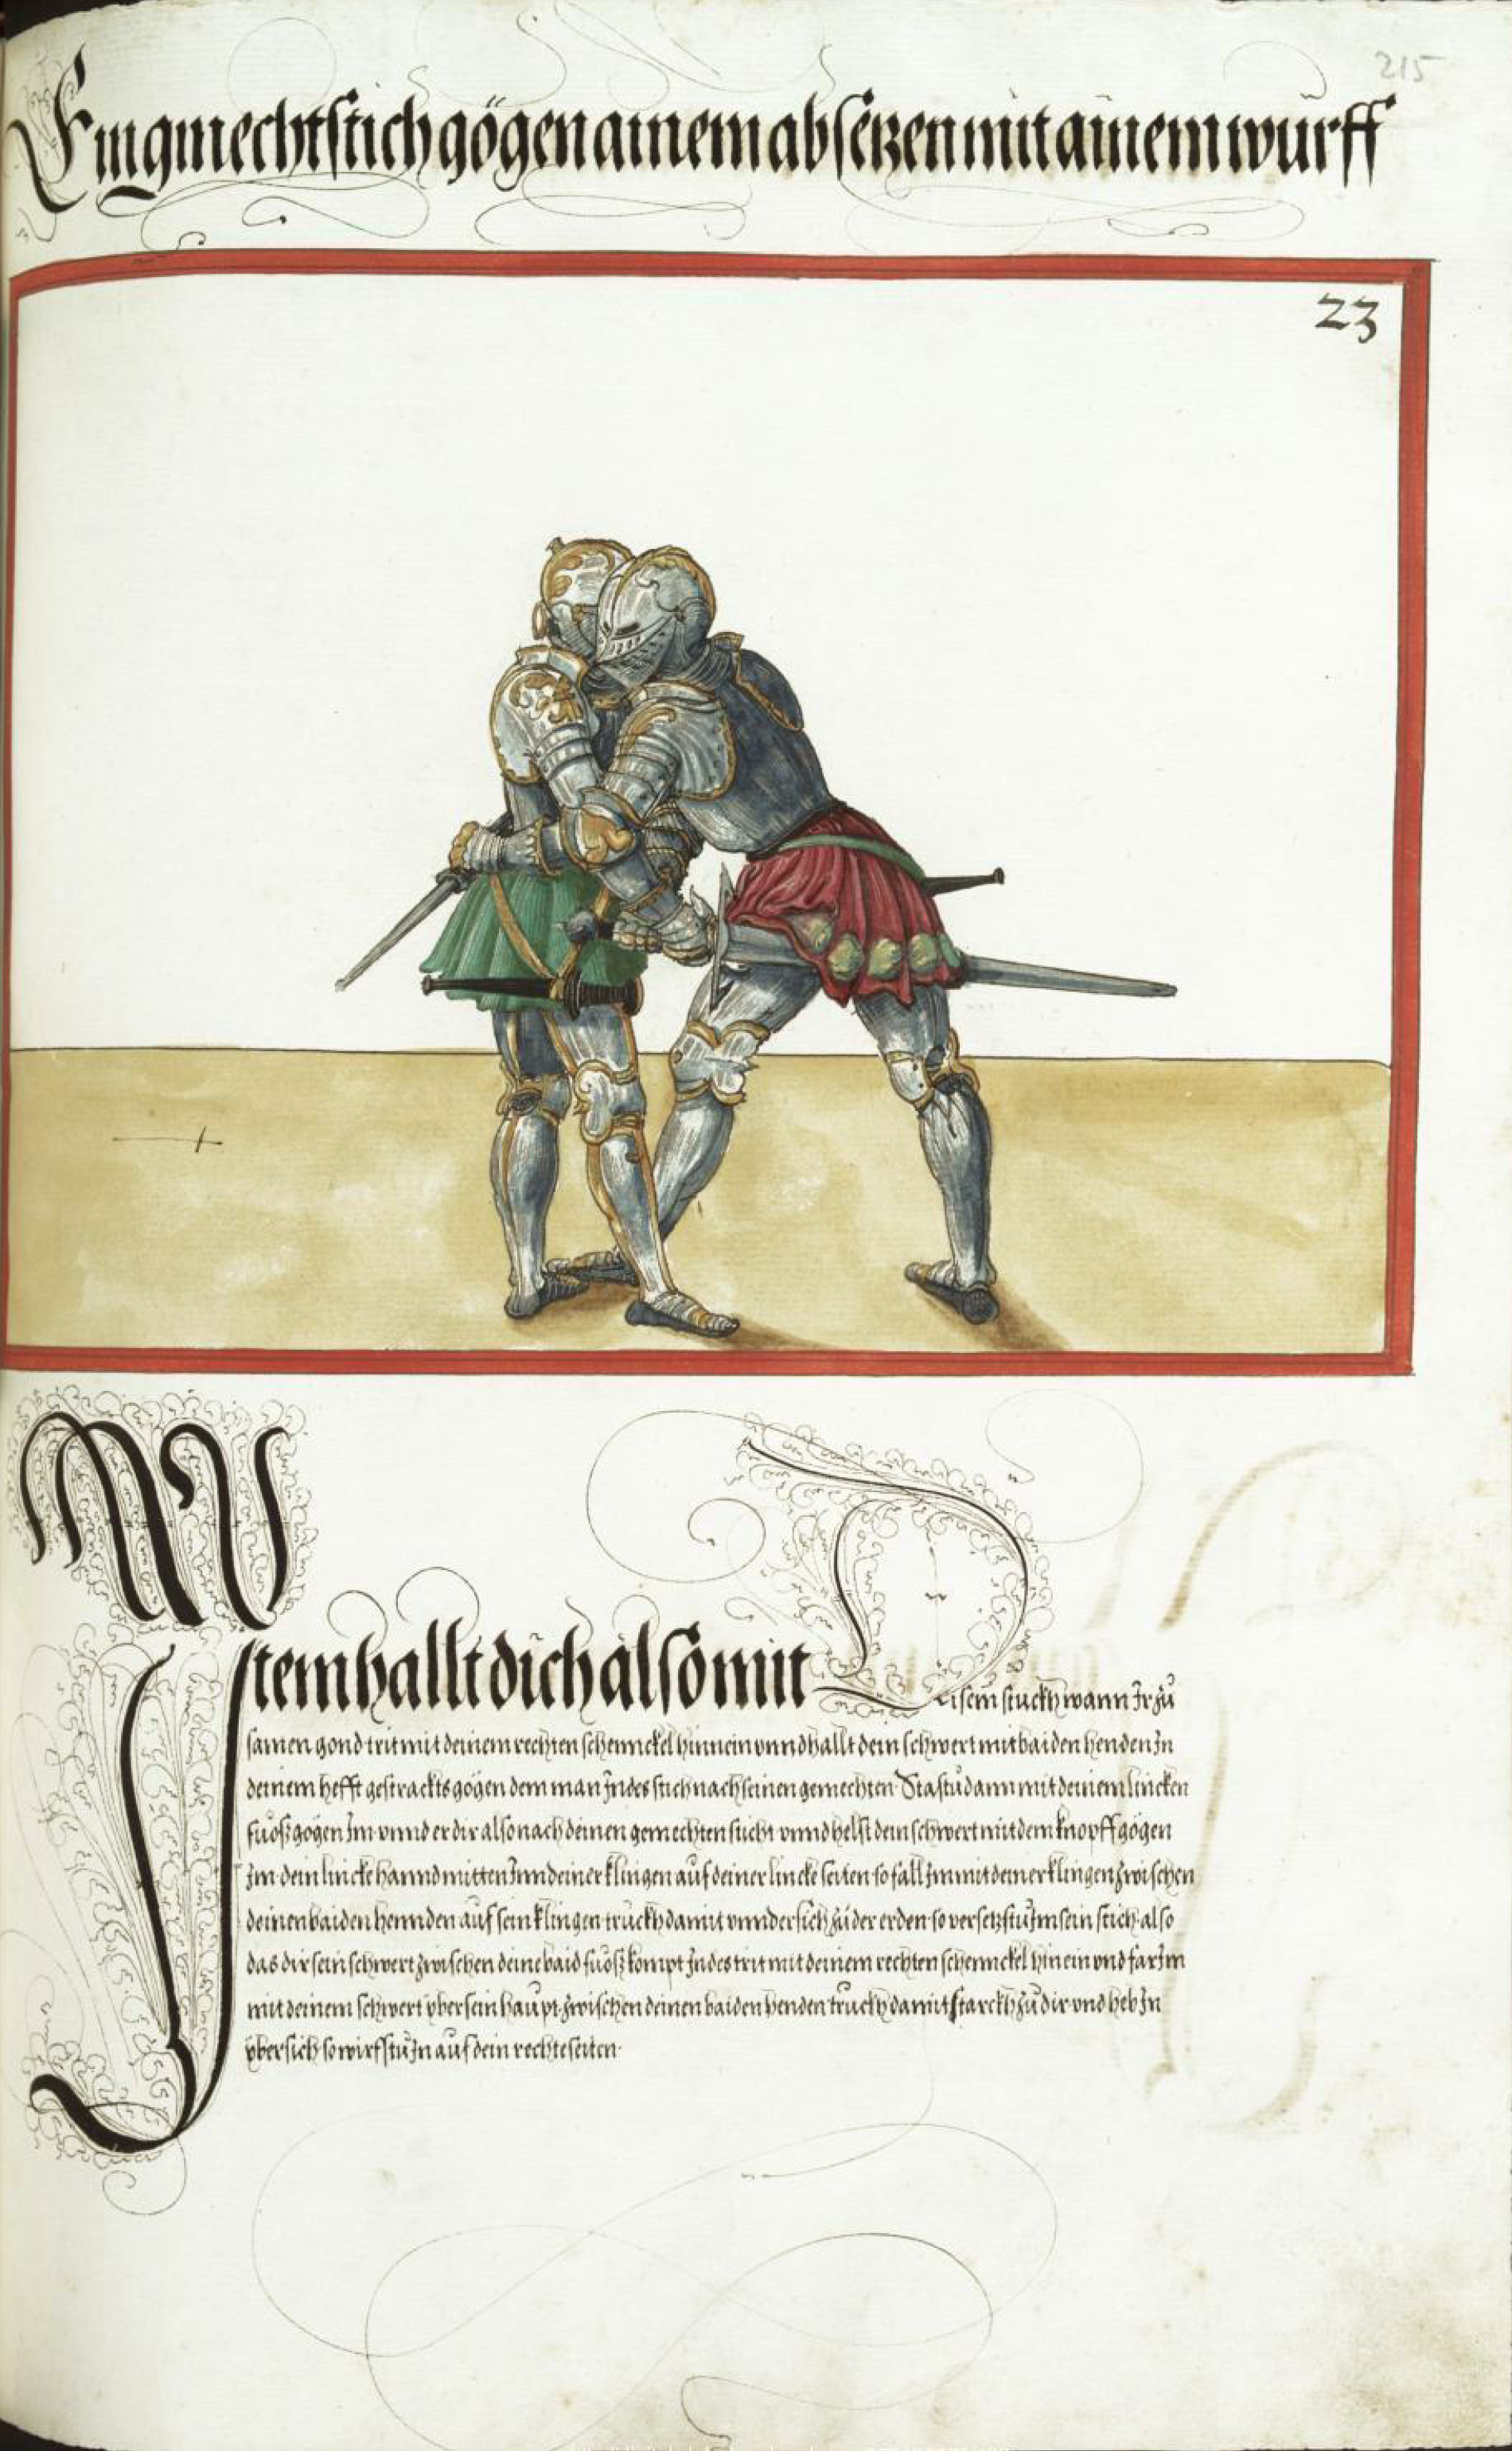 215
Ein gmecht stich gögen ainem absetzen mit ainem würff
23
Item hallt dich also mit Disem stuckh wann Ir zu
samen gond trit mit deinem rechten schennckel hinnein unnd hallt dein schwert mit baiden henden In
deinem hefft gestrackts gögen dem man Indes stich nach seinen gemechten Stastu dann mit deinem lincken
fuosz gögen Im unnd er dir also nach deinen gemechten sticht unnd helst dein schwert mit dem knopff gögen
Im dein lincke hannd mitten Inn deiner klingen auf deiner lincke seiten so fall Im mit deiner klingen zwischen
deinen baiden hennden auf sein klingen truckh damit unndersich zu der erden so versetzstu Im sein stich also
das dir sein schwert zwischen deine baid fuosz kompt Indes trit mit deinem rechten schennckel hinein und far Im
mit deinem schwert yber sein haupt zwischen deinen baiden henden truckh damit starckh zu dir und heb In
ybersich so wirfstu In auf dein rechte seiten